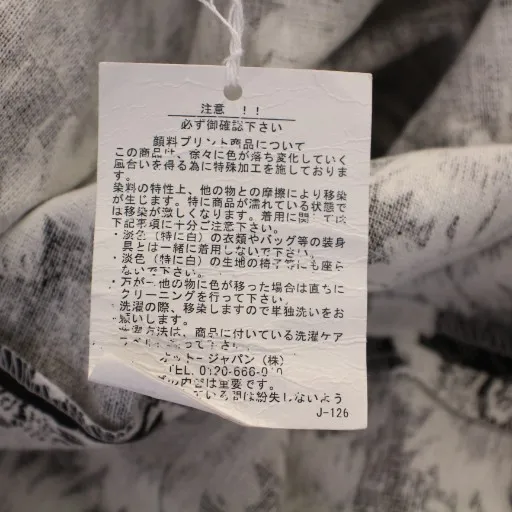 注意 !!
必ず御確認下さい
顔料プリント商品について
この商品は、徐々に色が落ち変化していく
風合いを得る為に特殊加工を施しておりま
す。
染料の特性上、他の物との摩擦により移染
が生じます。特に商品が濡れている状態で
は移染が激しくなります。着用に関しては
下記事項に十分ご注意下さい。
・淡色（特に白）の衣類やバッグ等の装身
具とは一緒に着用しないで下さい。
・淡色（特に白）の生地の椅子等にも座ら
ないで下さい。
・万が一他の物に色が移った場合は直ちに
クリーニングを行って下さい。
・洗濯の際、移染しますので単独洗いをお
願いします。
方法は、商品に付いている洗濯ケア
ジャパン（株）
TEL. 0120-666-
の内容は重要です。
いる間は紛失しないよう
J-126